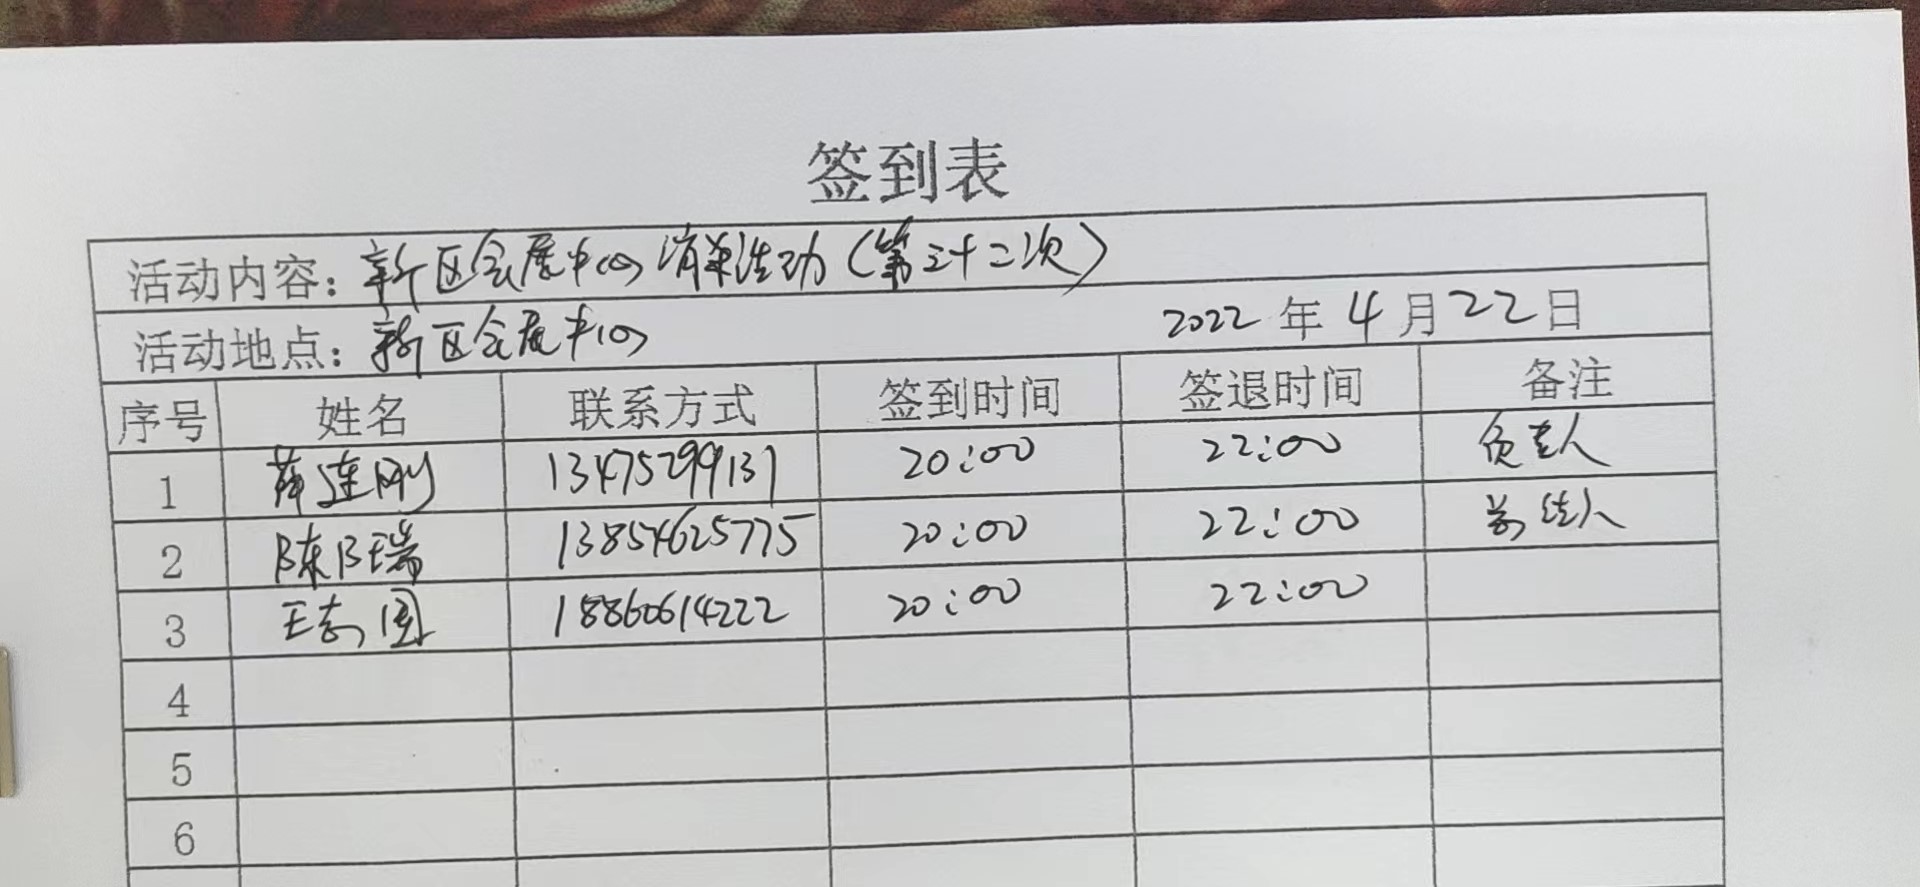 签到表
活动内容：新区会展中心消杀活动（第三十二次）
活动地点：新区会展中心 2022年4月22日
序号 姓名 联系方式 签到时间 签退时间 备注
1 薛连刚 13475299131 20:00 22:00 负责人
2 陈瑞 13854625775 20:00 22:00
3 王志国 18860614222 20:00 22:00
4
5
6